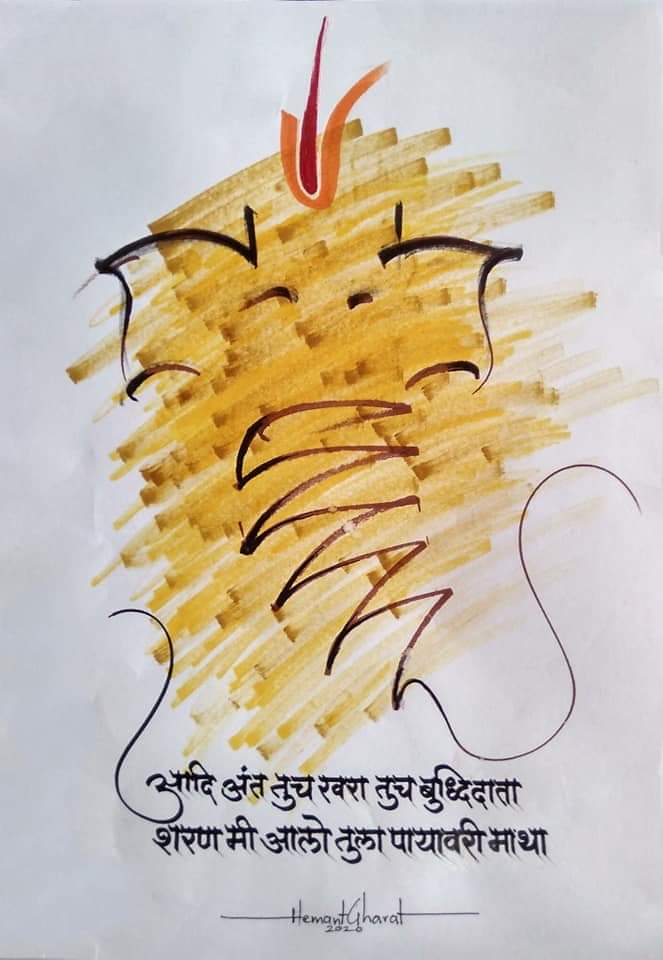 आदि अंत तुच खरा तुच बुध्दिदाता
शरण मी आलो तुला पायावरी माथा
Hemant Gharat
2020